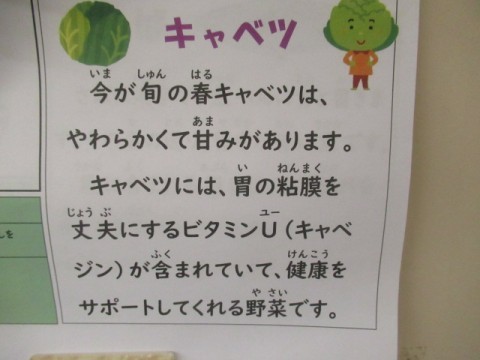 キャベツ
いま しゅん はる
今が旬の春キャベツは、
あま
やわらかくて甘みがあります。
い ねんまく
キャベツには、胃の粘膜を
じょうぶ ユー
丈夫にするビタミンU（キャベ
ふく けんこう
ジン）が含まれていて、健康を
やさい
サポートしてくれる野菜です。